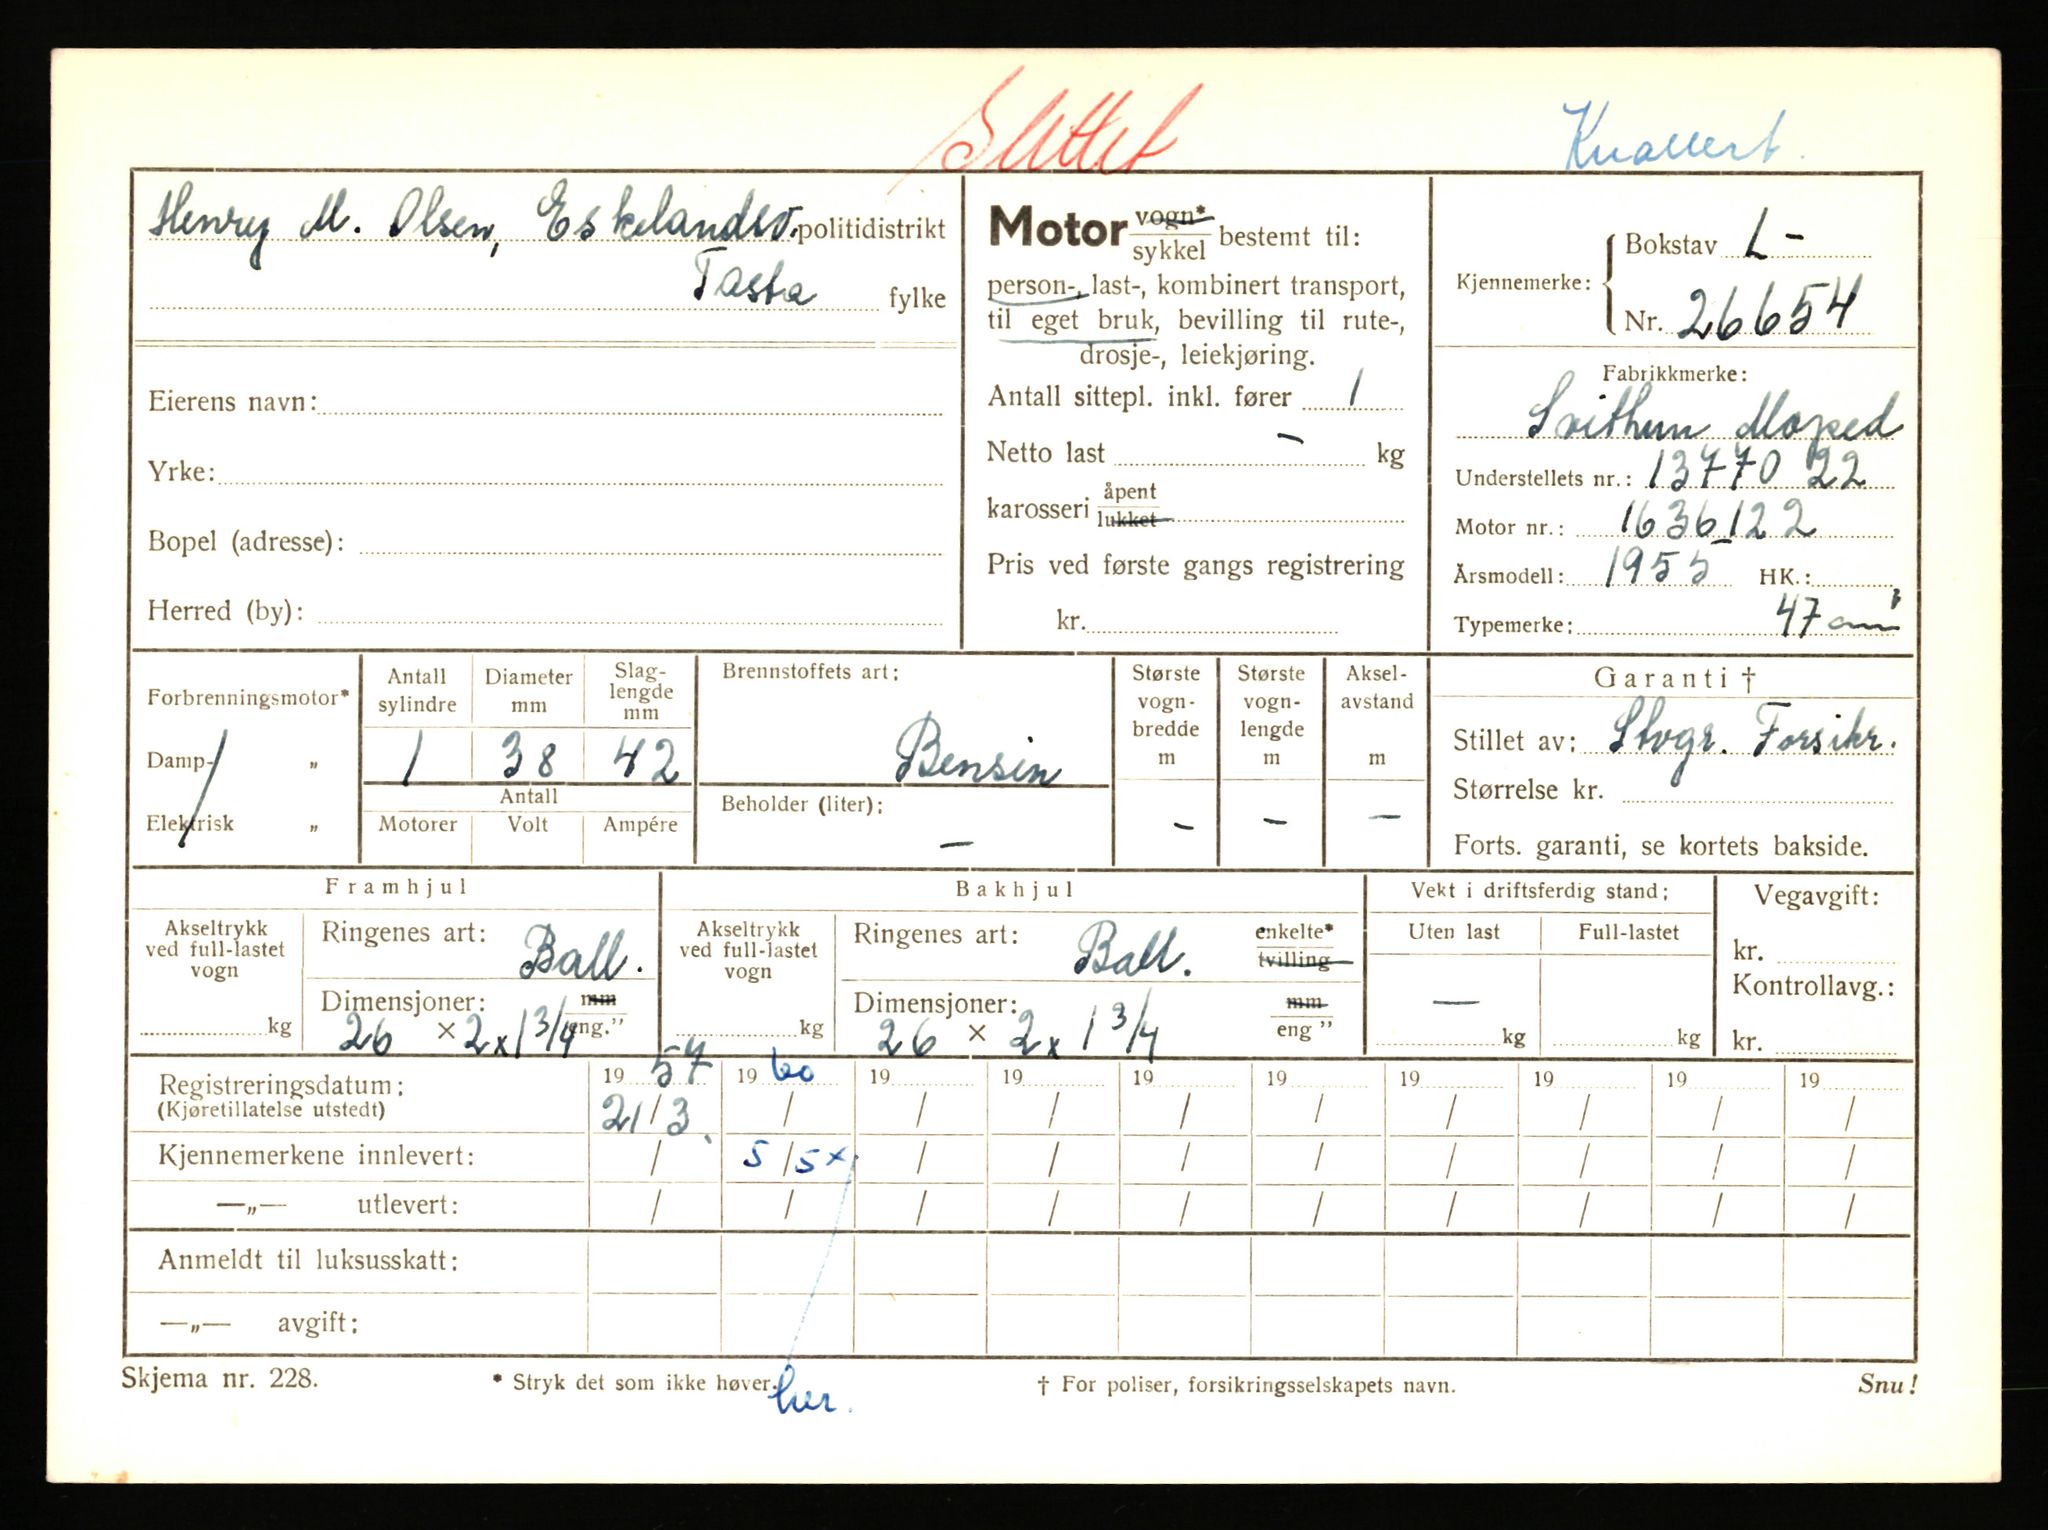 Slettet
Knallert.
Henry M. Olsen, Eskelandsv. politidistrikt
Tasta fylke
Eierens navn:
Yrke:
Bopel (adresse):
Herred (by):
Motor vogn* / sykkel bestemt til:
person-, last-, kombinert transport,
til eget bruk, bevilling til rute-,
drosje-, leiekjøring.
Antall sittepl. inkl. fører 1
Netto last – kg
karosseri åpent / lukket
Pris ved første gangs registrering
kr.
Kjennemerke: Bokstav L-
Nr. 26654
Fabrikkmerke:
Svithun Moped
Understellets nr.: 13770 22
Motor nr.: 1636122
Årsmodell: 1955 HK.:
Typemerke: 47 cm³
Forbrenningsmotor*
Damp- „
Elektrisk „
Antall sylindre
1
Diameter mm
38
Slag-lengde mm
42
Antall
Motorer Volt Ampére
Brennstoffets art:
Bensin
Beholder (liter):
–
Største vogn-bredde m
–
Største vogn-lengde m
–
Aksel-avstand m
–
Garanti †
Stillet av: Stvgr. Forsikr.
Størrelse kr.
Forts. garanti, se kortets bakside.
Framhjul
Akseltrykk ved full-lastet vogn
kg
Ringenes art: Ball.
Dimensjoner: mm / eng."
26 × 2 x 1 3/4
Bakhjul
Akseltrykk ved full-lastet vogn
kg
Ringenes art: Ball. enkelte* / tvilling
Dimensjoner: mm / eng "
26 × 2 x 1 3/4
Vekt i driftsferdig stand:
Uten last Full-lastet
—
kg kg
Vegavgift:
kr.
Kontrollavg.:
kr.
Registreringsdatum: 19 57 19 60 19 19 19 19 19 19 19 19
(Kjøretillatelse utstedt) 21/3. / / / / / / / / /
Kjennemerkene innlevert: / 5/5 x / / / / / / / /
—„— utlevert: / / / / / / / / / /
Anmeldt til luksusskatt:
—„— avgift:
Skjema nr. 228. * Stryk det som ikke høver. her. † For poliser, forsikringsselskapets navn. Snu!